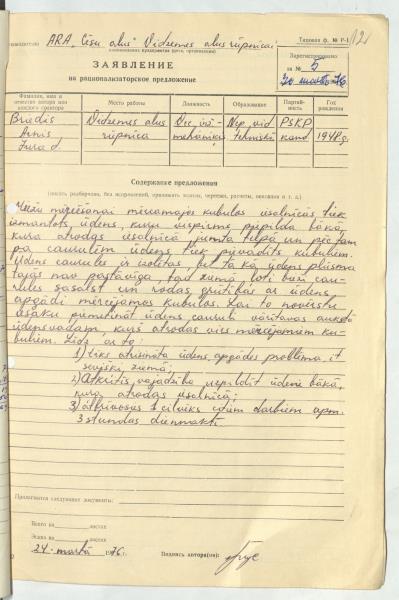 ARA „Cēsu alus" Vidzemes alus rūpnīcai
Типовая ф. № Р-1
121
(наименование предприятия (цеха, организации)
ЗАЯВЛЕНИЕ
на рационализаторское предложение
Зарегистрировано
за № 5
30 martā 76
Фамилия, имя и отчество автора или каждого соавтора
Место работы
Должность
Образование
Партийность
Год рождения
Briedis Vidzemes alus Vec. mehāniķis Nep. vid. PSKP 1948 g.
Arnis rūpnīca tehniskā kand
Jura d.
Содержание предложения
(писать разборчиво, без исправлений, прилагать эскизы, чертежи, расчеты, описания и т. д.)
mērcēšanai miecamajos kubulos iesalnīcās tiek
izmantots ūdens, kuru iepriekš piepilda bākā,
kura atrodas iesalnīcā jumta telpā un pēc tam
pa caurulēm ūdens tiek pievadīts kubuliem.
Ūdens caurules ir izolētas, bet tā kā ūdens plūsma
tajās nav pastāvīga, tad ziemā ļoti bieži cau-
rules sasalst un rodas grūtības ar ūdens
apgādi mērcējamos kubulos. Lai to novērstu
iesaku pievienot ūdens cauruli vārītavas aukstā
ūdensvadam, kurš atrodas virs mērcējamiem ku-
buliem. Līdz ar to:
1) tiks atrisināta ūdens apgādes problēma, it
sevišķi ziemā;
2) Atkritīs vajadzība iepildīt ūdeni bākā,
kura atrodas iesalnīcā;
3) atbrīvosies 1 cilvēks citiem darbiem apm.
3 stundas diennaktī.
Прилагаются следующие документы:
Всего на листах
Эскиз на листах
24. martā 1976 г. Подпись автора(ов):